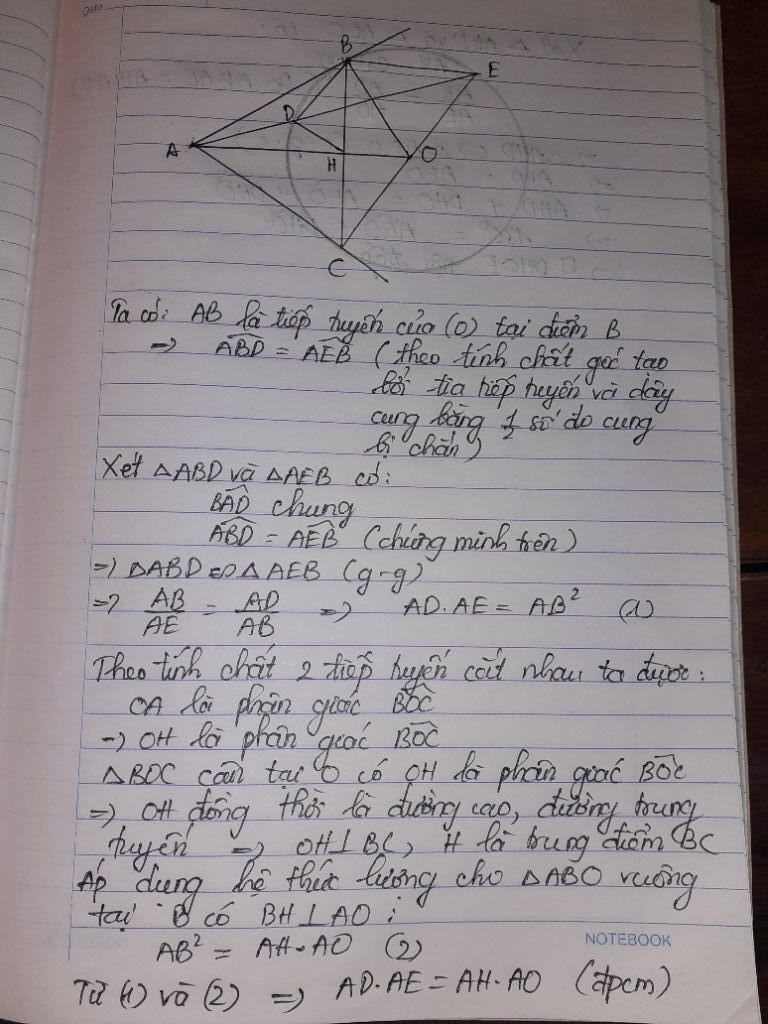 Date
B
E
D
A
H
O
C
Ta có: AB là tiếp tuyến của (O) tại điểm B
=> ABD = AEB (theo tính chất góc tạo
bởi tia tiếp tuyến và dây
cung bằng 1/2 số đo cung
bị chắn)
Xét △ABD và △AEB có:
BAD chung
ABD = AEB (chứng minh trên)
=> △ABD ∽ △AEB (g-g)
=> AB/AE = AD/AB => AD.AE = AB² (1)
Theo tính chất 2 tiếp tuyến cắt nhau ta được:
OA là phân giác BOC
=> OH là phân giác BOC
△BOC cân tại O có OH là phân giác BOC
=> OH đồng thời là đường cao, đường trung
tuyến => OH⊥BC, H là trung điểm BC
Áp dụng hệ thức lượng cho △ABO vuông
tại B có BH⊥AO:
AB² = AH.AO (2)
NOTEBOOK
Từ (1) và (2) => AD.AE = AH.AO (đpcm)